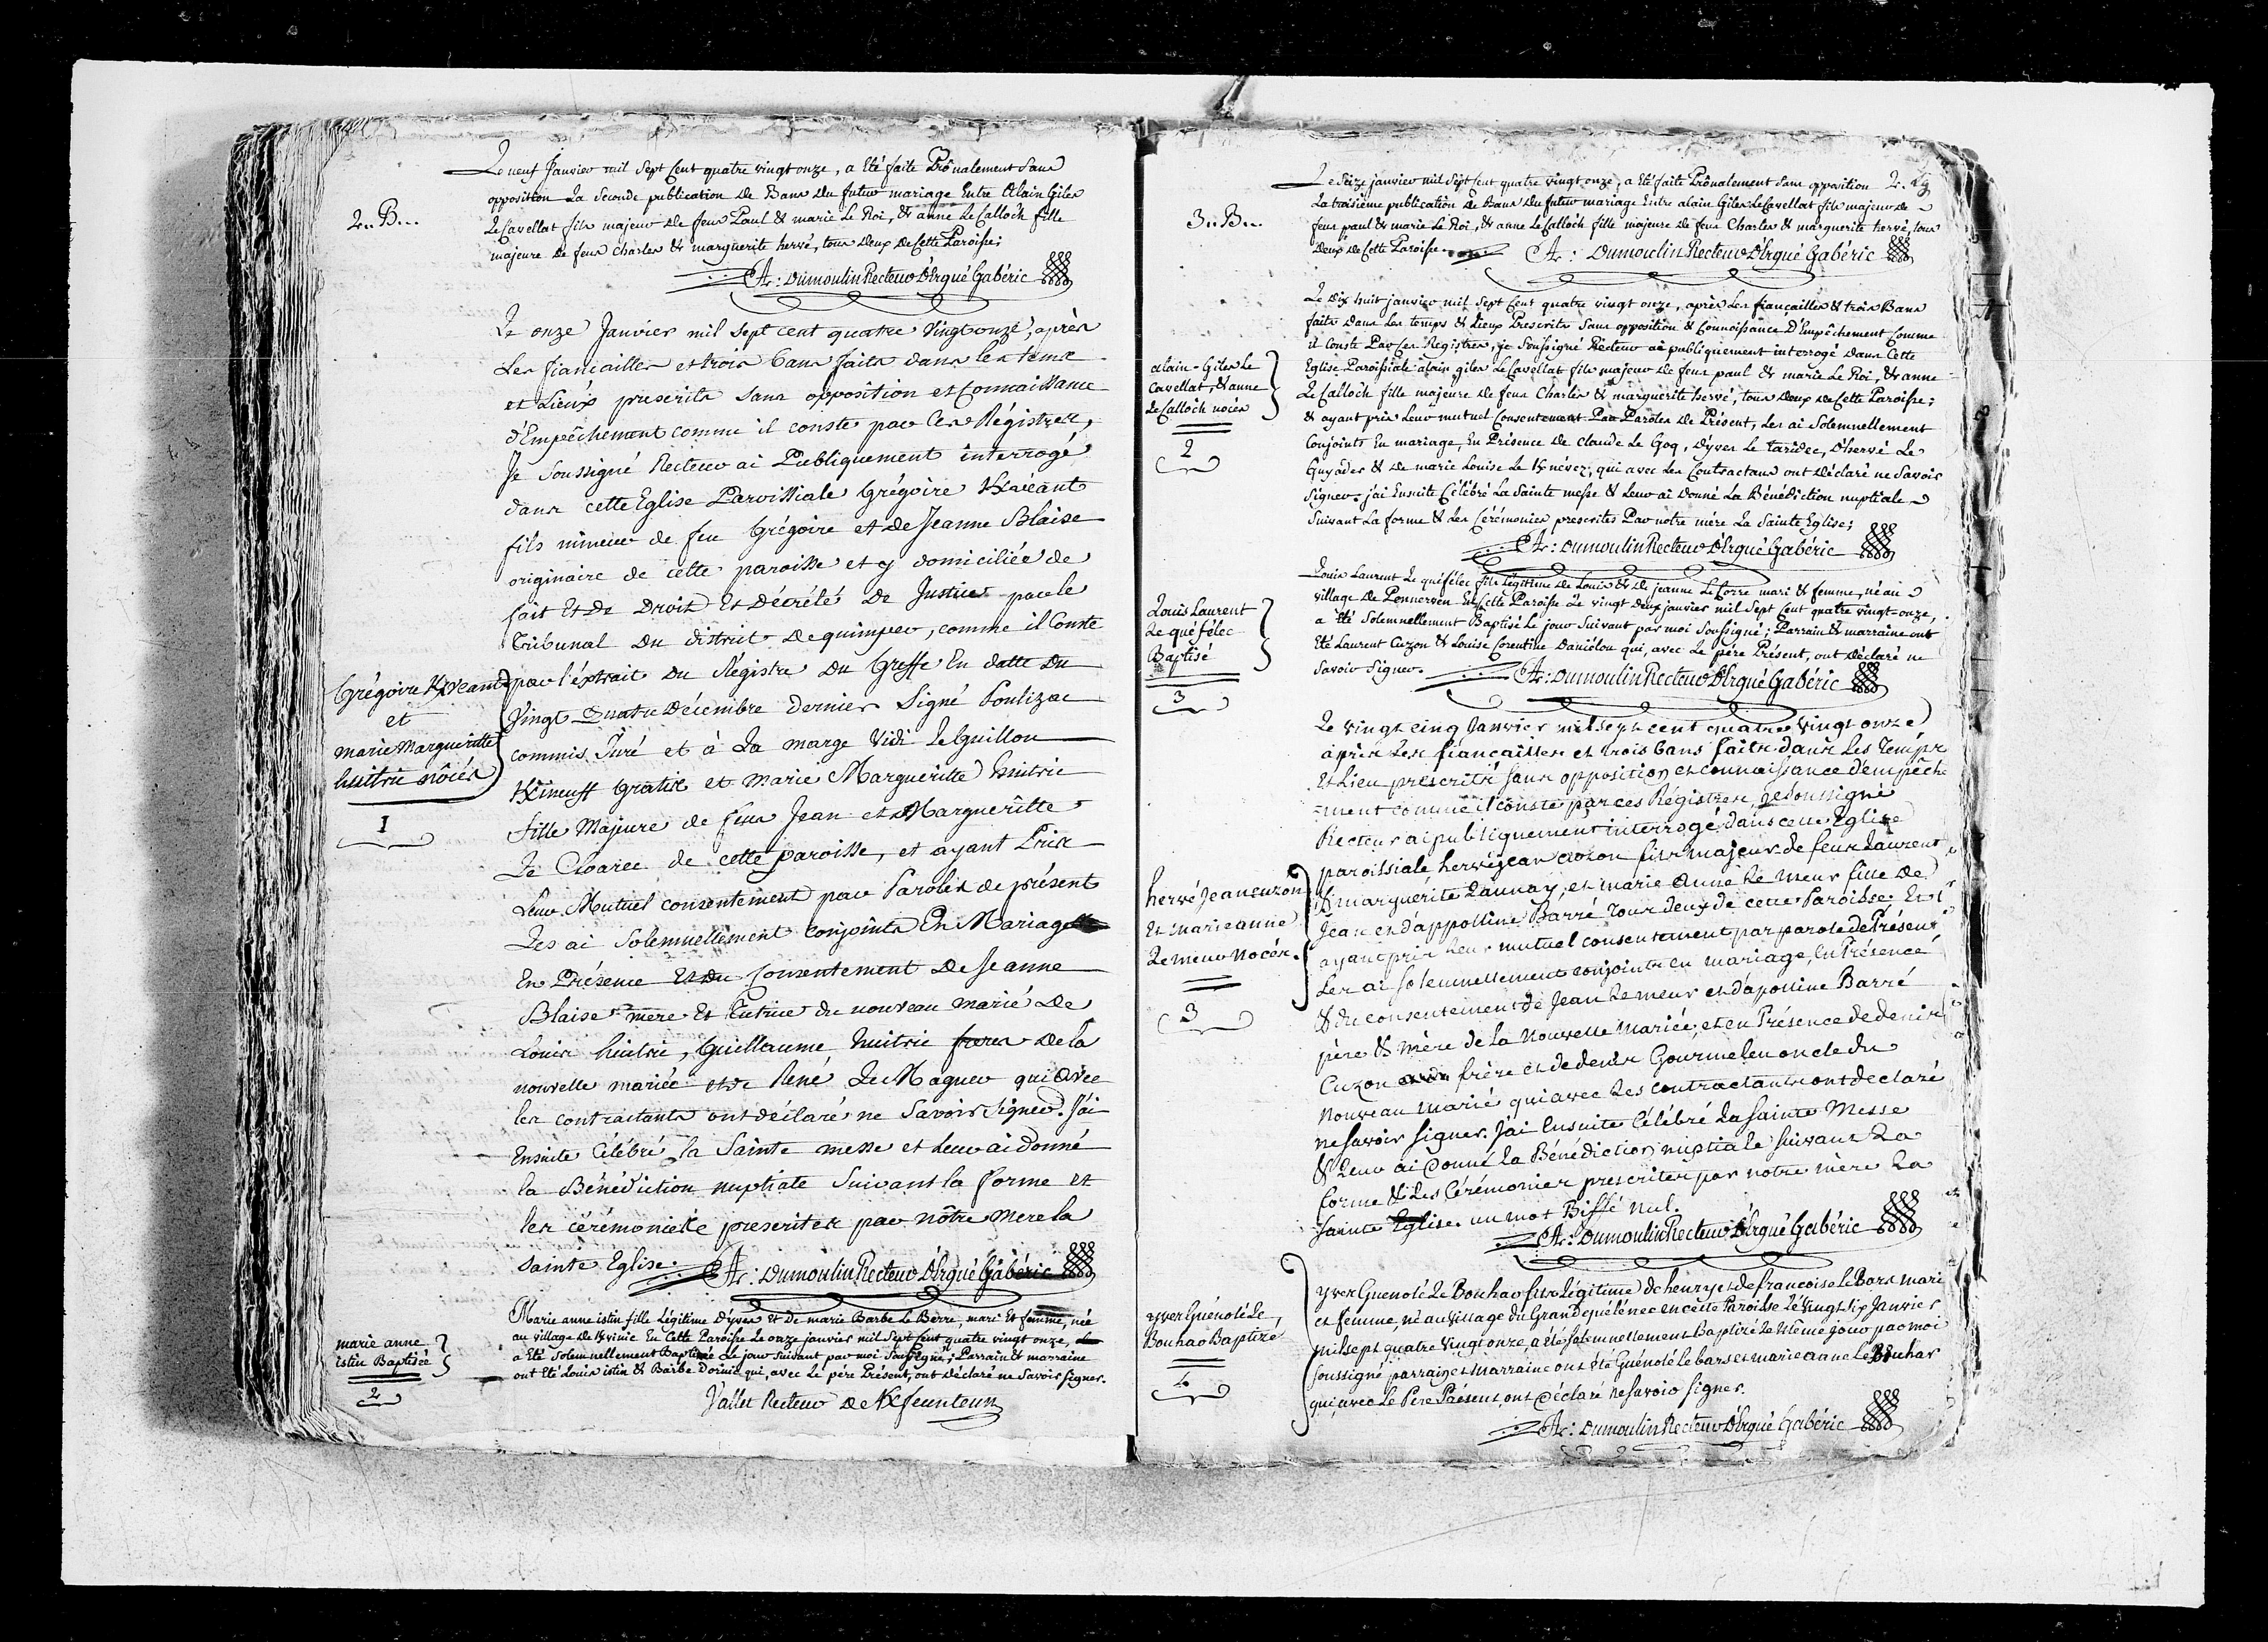 Le neuf Janvier mil Sept Cent quatre vingt onze, a été faite Prônalement sans
opposition La Seconde publication de Bans du futur mariage Entre Alain Giles
2.. B...
Le Cavellat fils majeur de feus Paul & marie Le Roi, & anne Le Calloc'h fille
majeure de feus Charles & marguerite hervé, tous deux de Cette Paroisse;
A: Dumoulin Recteur D'Ergué Gabéric
Le onze Janvier mil Sept cent quatre vingt onze, après
Les fiancailles et trois bans faits dans les tems
et Lieux prescrits sans opposition et Connaissance
d'Empêchement comme il conste par Ces Régistres,
Je soussigné Recteur ai Publiquement interrogé
dans cette Eglise Paroissiale Grégoire
fils mineur de feu Grégoire et de Jeanne Blaise
originaire de cette paroisse et y domiciliée de
fait Et de Droit Et Décrété de Justice par le
Tribunal du district de quimper, comme il Conste
par l'éxtrait du Régistre du Greffe En datte du
Vingt Quatre Décembre dernier Signé Poulizac
commis Juré et à La marge Vidi Le Guillou
gratis et Marie Margueritte huitric
fille Majeure de feus Jean et Margueritte
Le Cloarec de cette paroisse, et ayant Pris
Leur Mutuel consentement par Paroles de présent
Les ai Solemnellement conjoints En Mariage
En Présence Et du Consentement de Jeanne
Blaise mere Et Tutrice du nouveau marié de
Louis huitric, Guillaume huitric freres de la
nouvelle mariée et de René Le Magueur qui avec
les contractants ont déclaré ne Savoir Signer. J'ai
Ensuite Célébré la Sainte messe et Leur ai donné
la Bénédiction nuptiale Suivant la forme et
les cérémonies prescrites par nôtre Mere la
Sainte Eglise.
A: Dumoulin Recteur D'Ergué Gabéric
Grégoire
et
marie Margueritte
huitric nôces
1
Marie anne istin fille Légitime D'yves & De marie Barbe Le Berre, mari Et femme, née
au village de En Cette Paroisse Le onze janvier mil Sept Cent quatre vingt onze,
a Eté Solemnellement Baptisée Le jour Suivant par moi Soussigné; Parrain & marraine
ont Eté Louis istin & Barbe qui, avec Le pére Présent, ont déclaré ne Savoir signer.
Vallet Recteur de Kfeunteun
marie anne
istin Baptisée
2
Le Seize janvier mil Sept Cent quatre vingt onze, a Eté faite Prônalement sans opposition 2.
La troisième publication de Bans du futur mariage Entre alain Giles Le Cavellat fils majeur de
3.. B...
feus paul & marie Le Roi, & anne Le Calloch fille majeure de feus Charles & marguerite hervé, tous
deux de Cette Paroisse.
A: Dumoulin Recteur D'Ergué Gabéric
Le Dix huit janvier mil Sept Cent quatre vingt onze, après Les fiançailles & trois Bans
faits dans Les temps & Lieux Prescrits Sans opposition & Connoissance d'Empêchement Comme
il Conste Par Ces Registres, je Soussigné Recteur ai publiquement interrogé dans Cette
Eglise Paroissiale alain giles Le Cavellat fils majeur de feus paul & marie Le Roi, & anne
Le Calloch fille majeure de feus Charles & marguerite hervé, tous deux de Cette Paroisse;
& ayant pris Leur mutuel Consentement Par Paroles de Présent, Les ai Solemnellement
Conjoints En mariage, En Présence de Claude Le Goq, D'yves Le taridec, D'hervé Le
Guyader & De marie Louise Le Knévez; qui avec Les Contractans ont déclaré ne Savoir
Signer. j'ai Ensuite Célébré La Sainte messe & Leur ai Donné La Bénédiction nuptiale
Suivant La forme & Les Cérémonies prescrites Par notre mére La Sainte Eglise;
A: Dumoulin Recteur D'Ergué Gabéric
alain-Giles Le
Cavellat, & anne
Le Calloch nôces
2
Louis Laurent Le quéfélec fils Légitime de Louis & de jeanne Le Corre mari & femme, né au
village de Pennerven En Cette Paroisse Le vingt deux janvier mil Sept Cent quatre vingt-onze,
a Eté Solemnellement Baptisé Le jour Suivant par moi Soussigné; Parrain & marraine ont
Eté Laurent Cuzon & Louise Corentine Daniélou qui, avec Le pére Présent, ont déclaré ne
Savoir Signer.
A: Dumoulin Recteur D'Ergué Gabéric
Louis Laurent
Le quéfélec
Baptisé
3
Le vingt cinq Janvier mil sept cent quatre vingt onze
après Les fiancailles et trois bans faits dans Les Temps
Et Lieu prescrits sans opposition et connaissance d'empêche
-ment comme il conste par ces Régistres, je soussigné
Recteur ai publiquement interrogé dans cette Eglise
paroissiale hervé jean cuzon fils majeur de feus Laurent
& marguerite Launay, et marie Anne Le Meur fille de
Jean et d'appolline Barré Tous deux de cette Paroisse Et
ayant pris Leur mutuel consentement par parole de Présent
Les ai solemnellement conjoints en mariage, En Présence
& du consentement de Jean Le meur et d'apolline Barré
père & mère de la Nouvelle Mariée; et en Présence de denis
Cuzon frère et de denis Gourmelen oncle du
Nouveau marié qui avec Les contractants ont declaré
ne savoir signer. J'ai Ensuite Célébré La Sainte Messe
& Leur ai Donné La Bénédiction nuptiale suivant La
forme & Les Cérémonies prescrites par notre mère La
Sainte Eglise. un mot Biffé Nul.
A: Dumoulin Recteur D'Ergué Gabéric
hervé Jean cuzon
Et marie anne
Le meur Nôces.
3
Yves Guenolé Le Bouhar fils Légitime de henry et de francoise Le Bars Mari
et femme, né au Village du Grand quélénec en cette Paroisse Le Vingt six Janvier
mil sept quatre Vingt onze, a été solemnellement Baptizé Le Même jour par moi
soussigné parrain et Marraine ont été Guénolé Le bars et marie anne Le Bouhar
qui, avec Le Pere Présent, ont Déclaré ne savoir signer.
A: Dumoulin Recteur D'Ergué Gabéric
yves Guénolé Le
Bouhar Baptizé
4